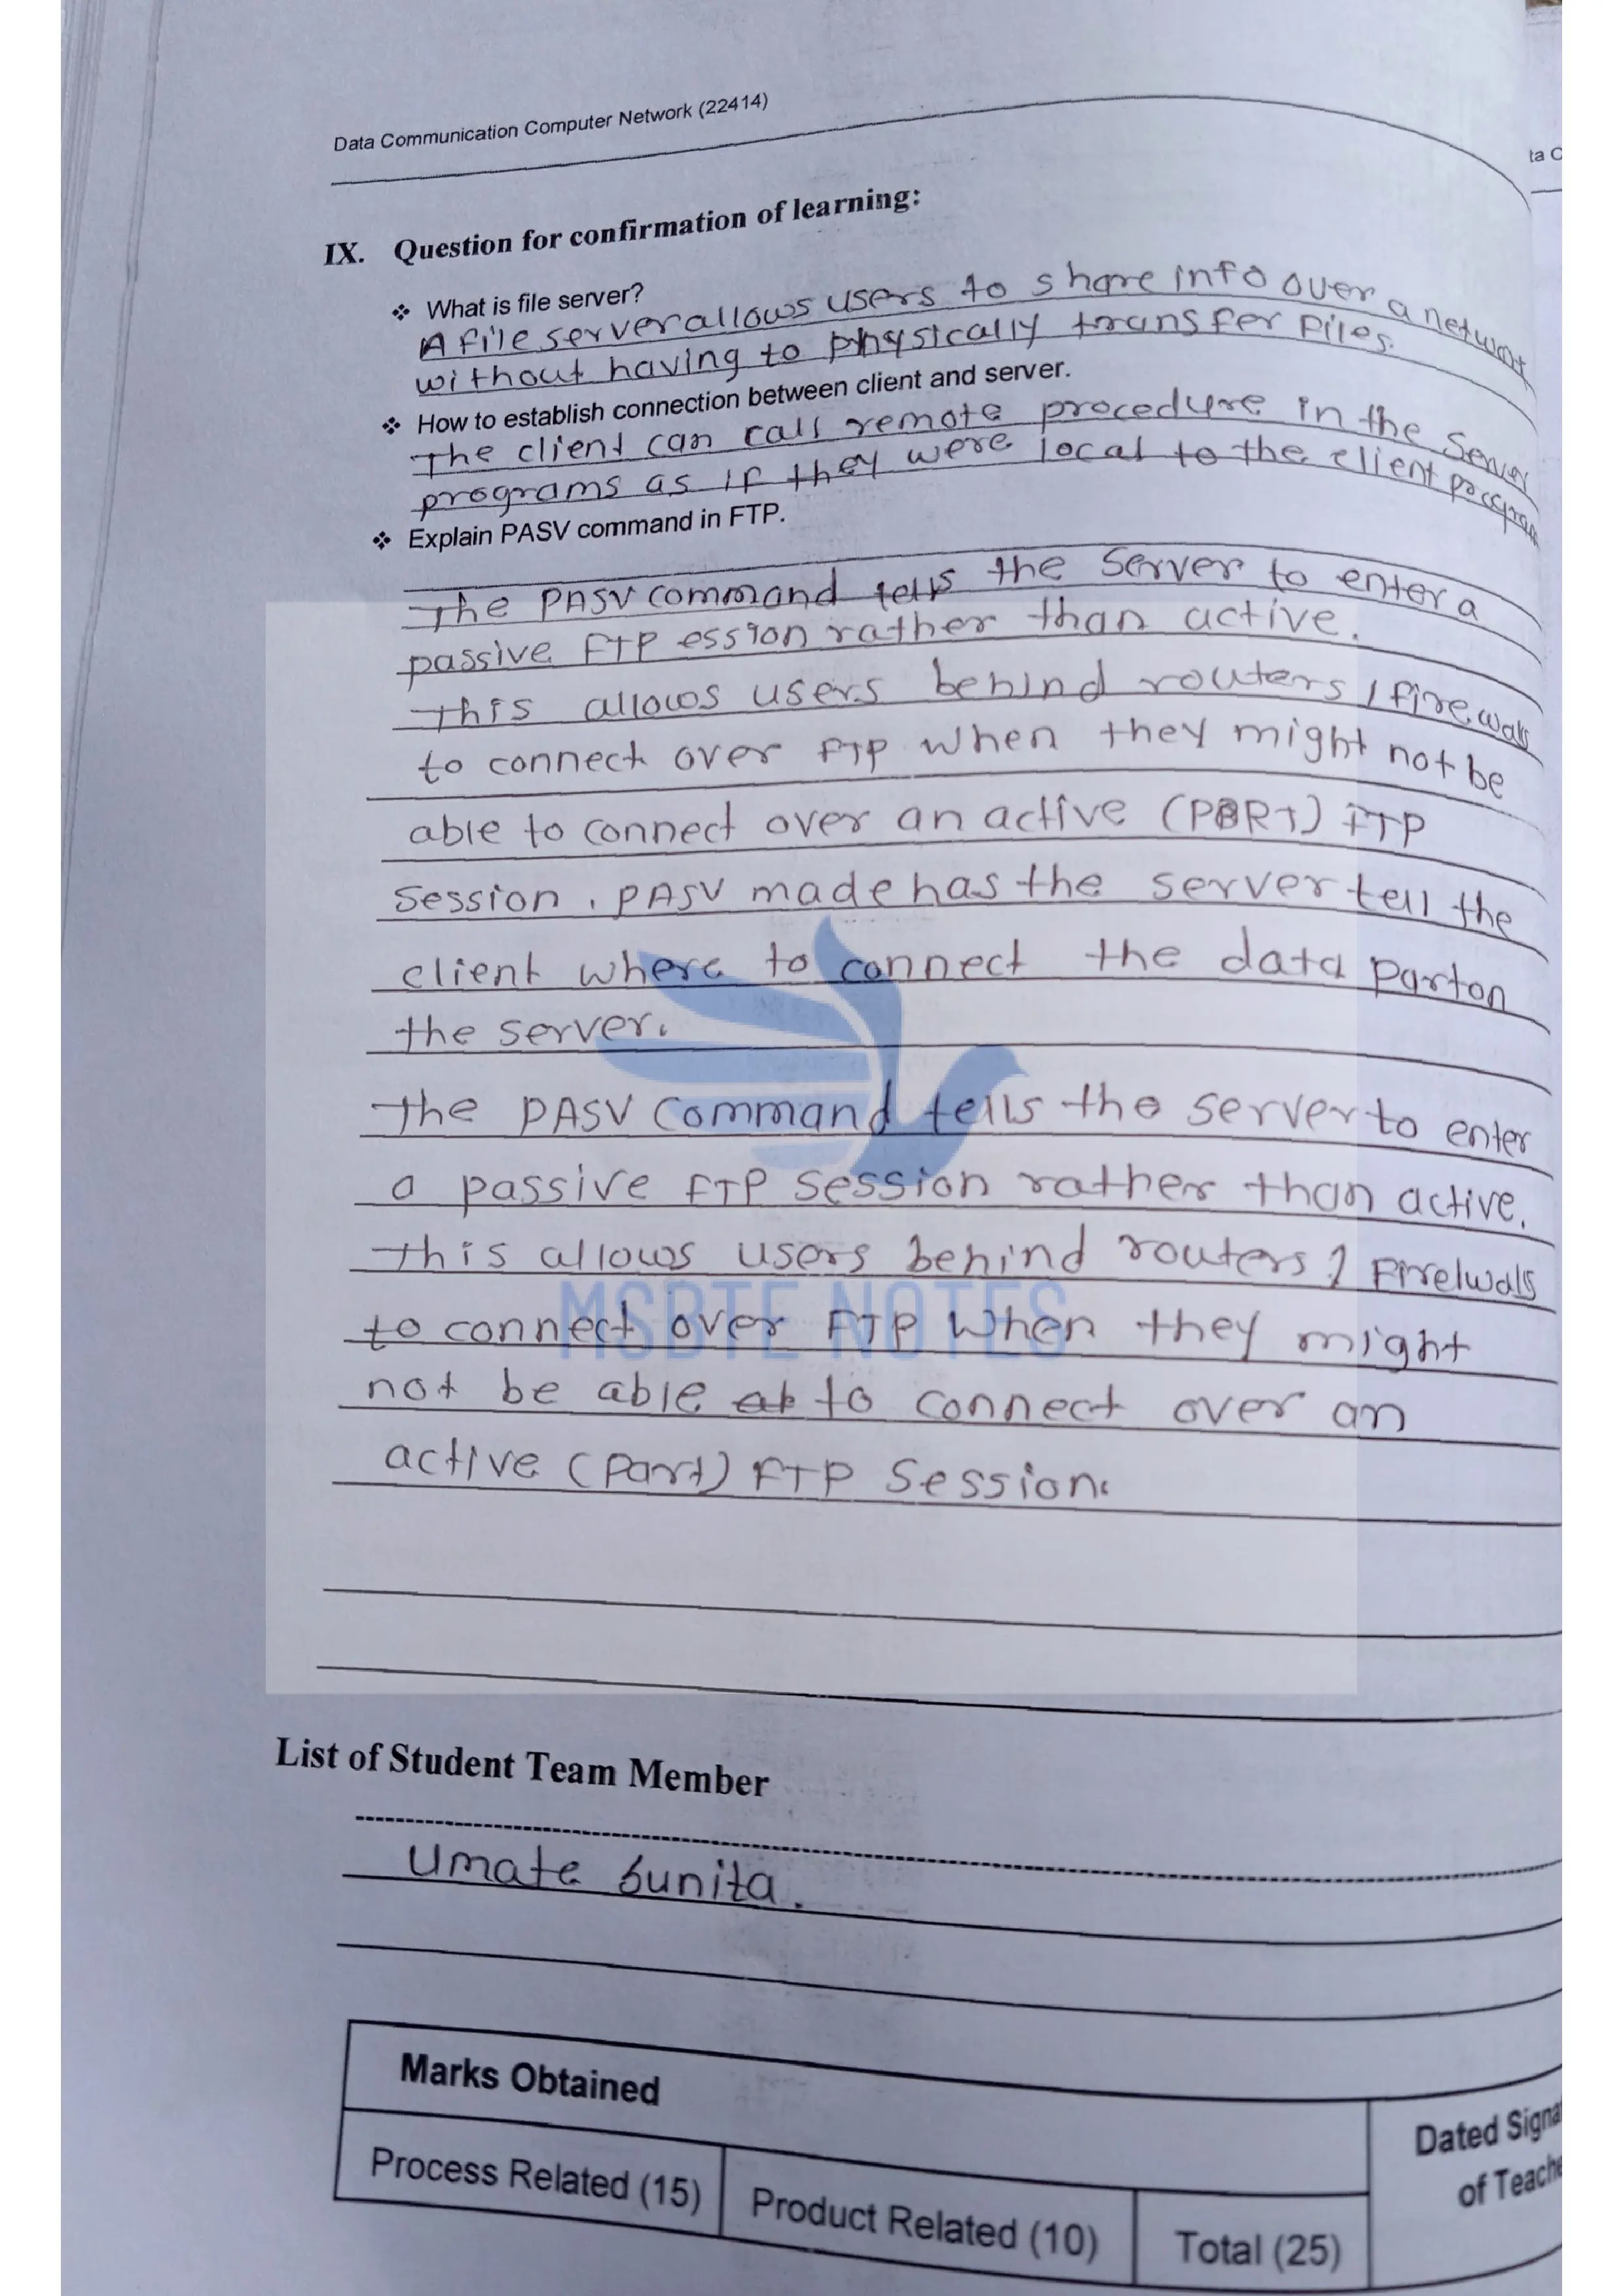 Data Communication Computer Network (22414)
ta C
IX. Question for confirmation of learning:
❖ What is file server?
A file server allows users to share info over a network
without having to physically transfer files.
❖ How to establish connection between client and server.
The client can call remote procedure in the Server
programs as if they were local to the client program
❖ Explain PASV command in FTP.
The PASV command tells the server to enter a
passive FTP ession rather than active.
This allows users behind routers / firewalls
to connect over FTP when they might not be
able to connect over an active (PORT) FTP
session. PASV made has the server tell the
client where to connect the data Parton
the server.
The PASV command tells the server to enter
a passive FTP session rather than active.
This allows users behind routers / Firelwals
to connect over FTP when they might
not be able to connect over an
active (Part) FTP Session.
MSBTE NOTES
List of Student Team Member
Umate Sunita.
Marks Obtained
Dated Signa
of Teache
Process Related (15) Product Related (10) Total (25)